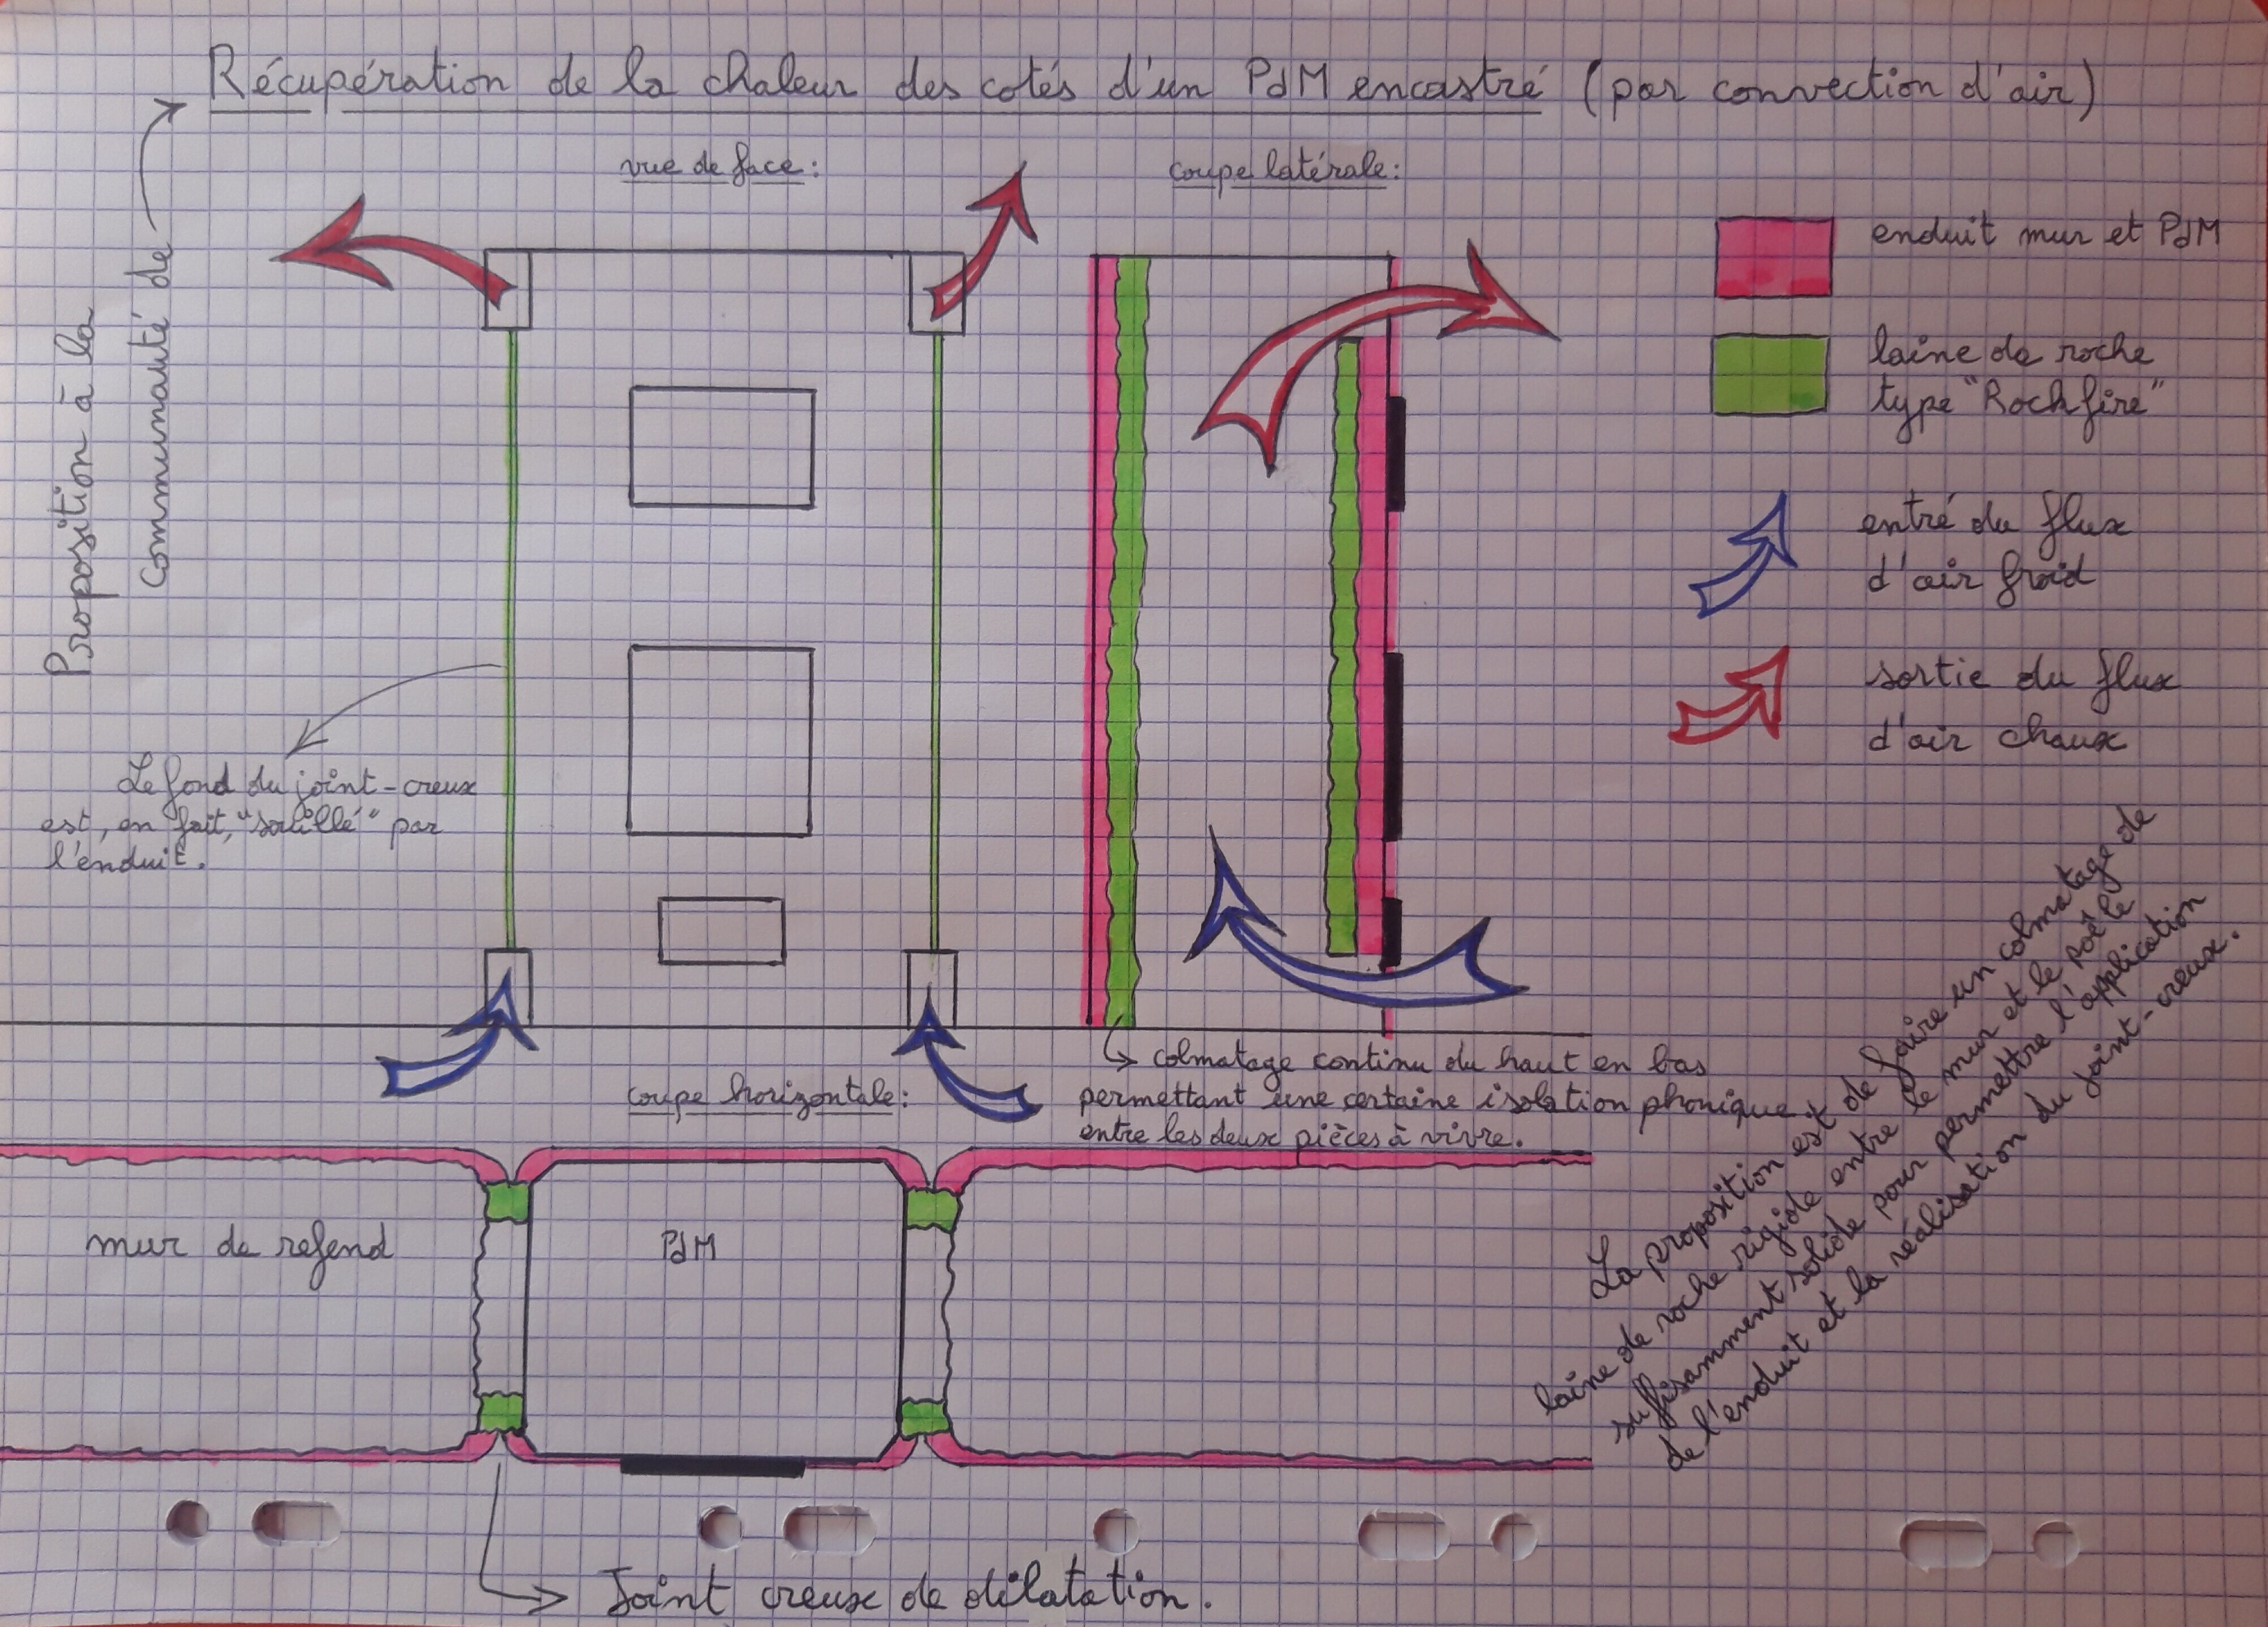 Récupération de la chaleur des cotés d'un PdM encastré (par convection d'air)
Proposition à la
Communauté de
vue de face :
coupe latérale :
enduit mur et PdM
laine de roche
type "Rockfire"
entré du flux
d'air froid
sortie du flux
d'air chaux
Le fond du joint-creux
est, en fait, "souillé" par
l'enduit.
colmatage continu du haut en bas
permettant une certaine isolation phonique
entre les deux pièces à vivre.
coupe horizontale :
mur de refend
PdM
La proposition est de faire un colmatage de
laine de roche rigide entre le mur et le poêle
suffisamment solide pour permettre l'application
de l'enduit et la réalisation du joint-creux.
Joint creux de dilatation.